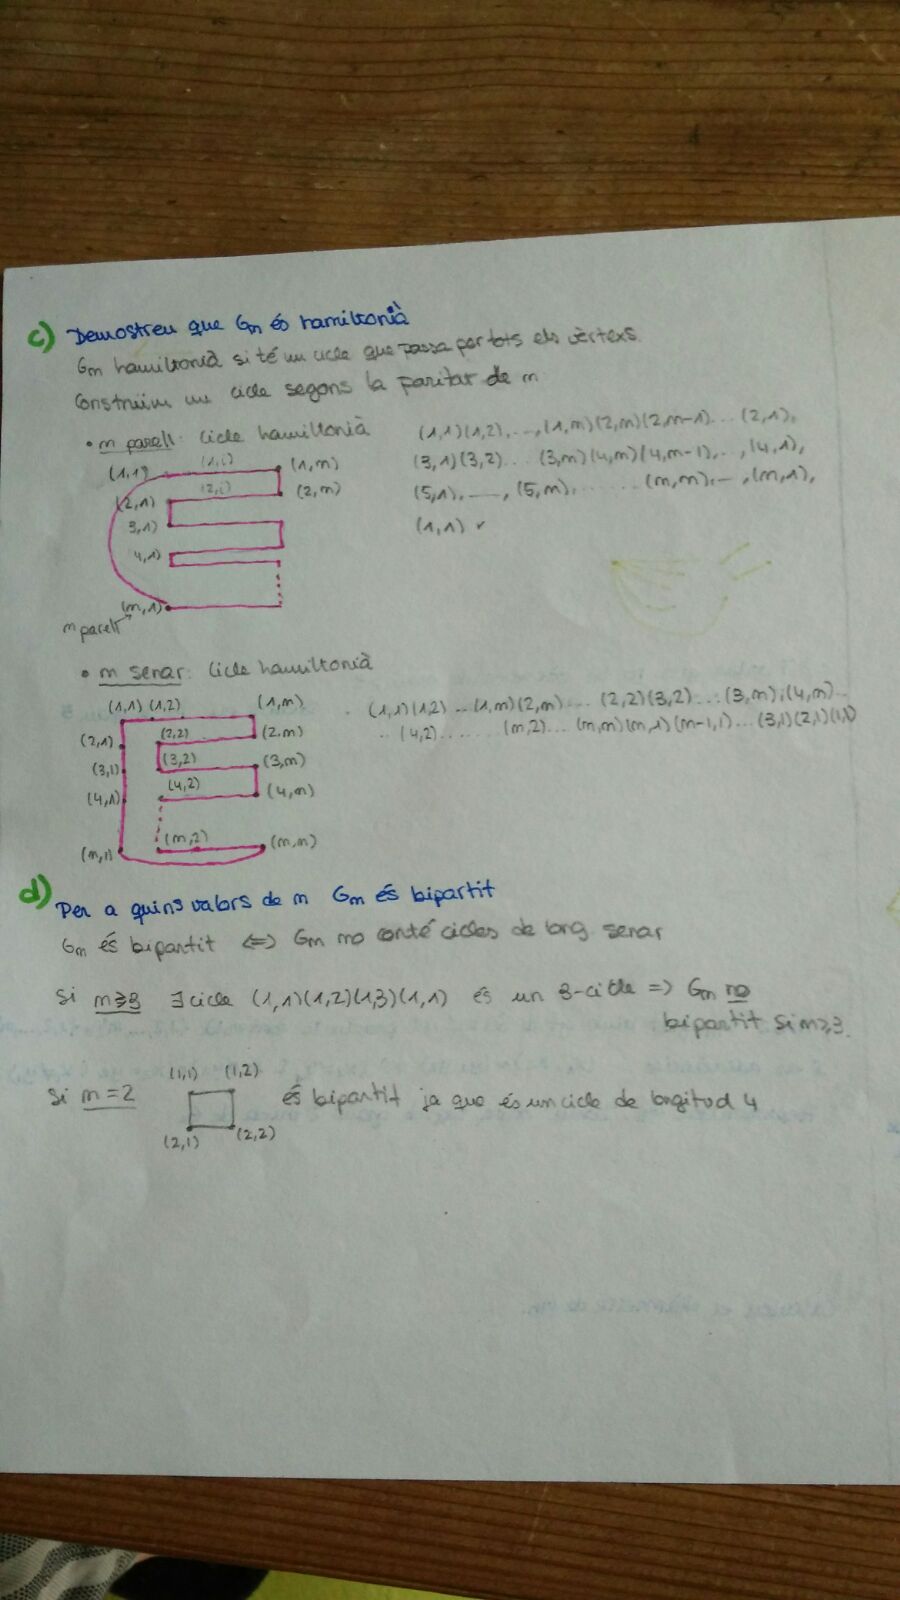 c) Demostreu que Gm és hamiltonià
Gm hamiltonià si té un cicle que passa per tots els vèrtexs.
Construïm un cicle segons la paritat de m
• m parell: cicle hamiltonià
(1,1) (1,i) (1,m)
(2,1) (2,i) (2,m)
3,1)
4,1)
(m,1)
m parell
(1,1)(1,2),...,(1,m)(2,m)(2,m-1)...(2,1),
(3,1)(3,2)...(3,m)(4,m)(4,m-1),..,(4,1),
(5,1),...,(5,m),......(m,m),...,(m,1),
(1,1) ✓
• m senar: cicle hamiltonià
(1,1) (1,2) (1,m)
(2,1) (2,2) (2,m)
(3,1) (3,2) (3,m)
(4,1) (4,2) (4,m)
(m,1) (m,2) (m,m)
(1,1)(1,2)...(1,m)(2,m)...(2,2)(3,2)...(3,m),(4,m)...
..(4,2).......(m,2)...(m,m)(m,1)(m-1,1)...(3,1)(2,1)(1,1)
d) Per a quins valors de m Gm és bipartit
Gm és bipartit <=> Gm no conté cicles de long. senar
Si m≥3 ∃ cicle (1,1)(1,2)(1,3)(1,1) és un 3-cicle => Gm no
bipartit si m≥3.
Si m=2
(1,1) (1,2)
(2,1) (2,2)
és bipartit ja que és un cicle de longitud 4